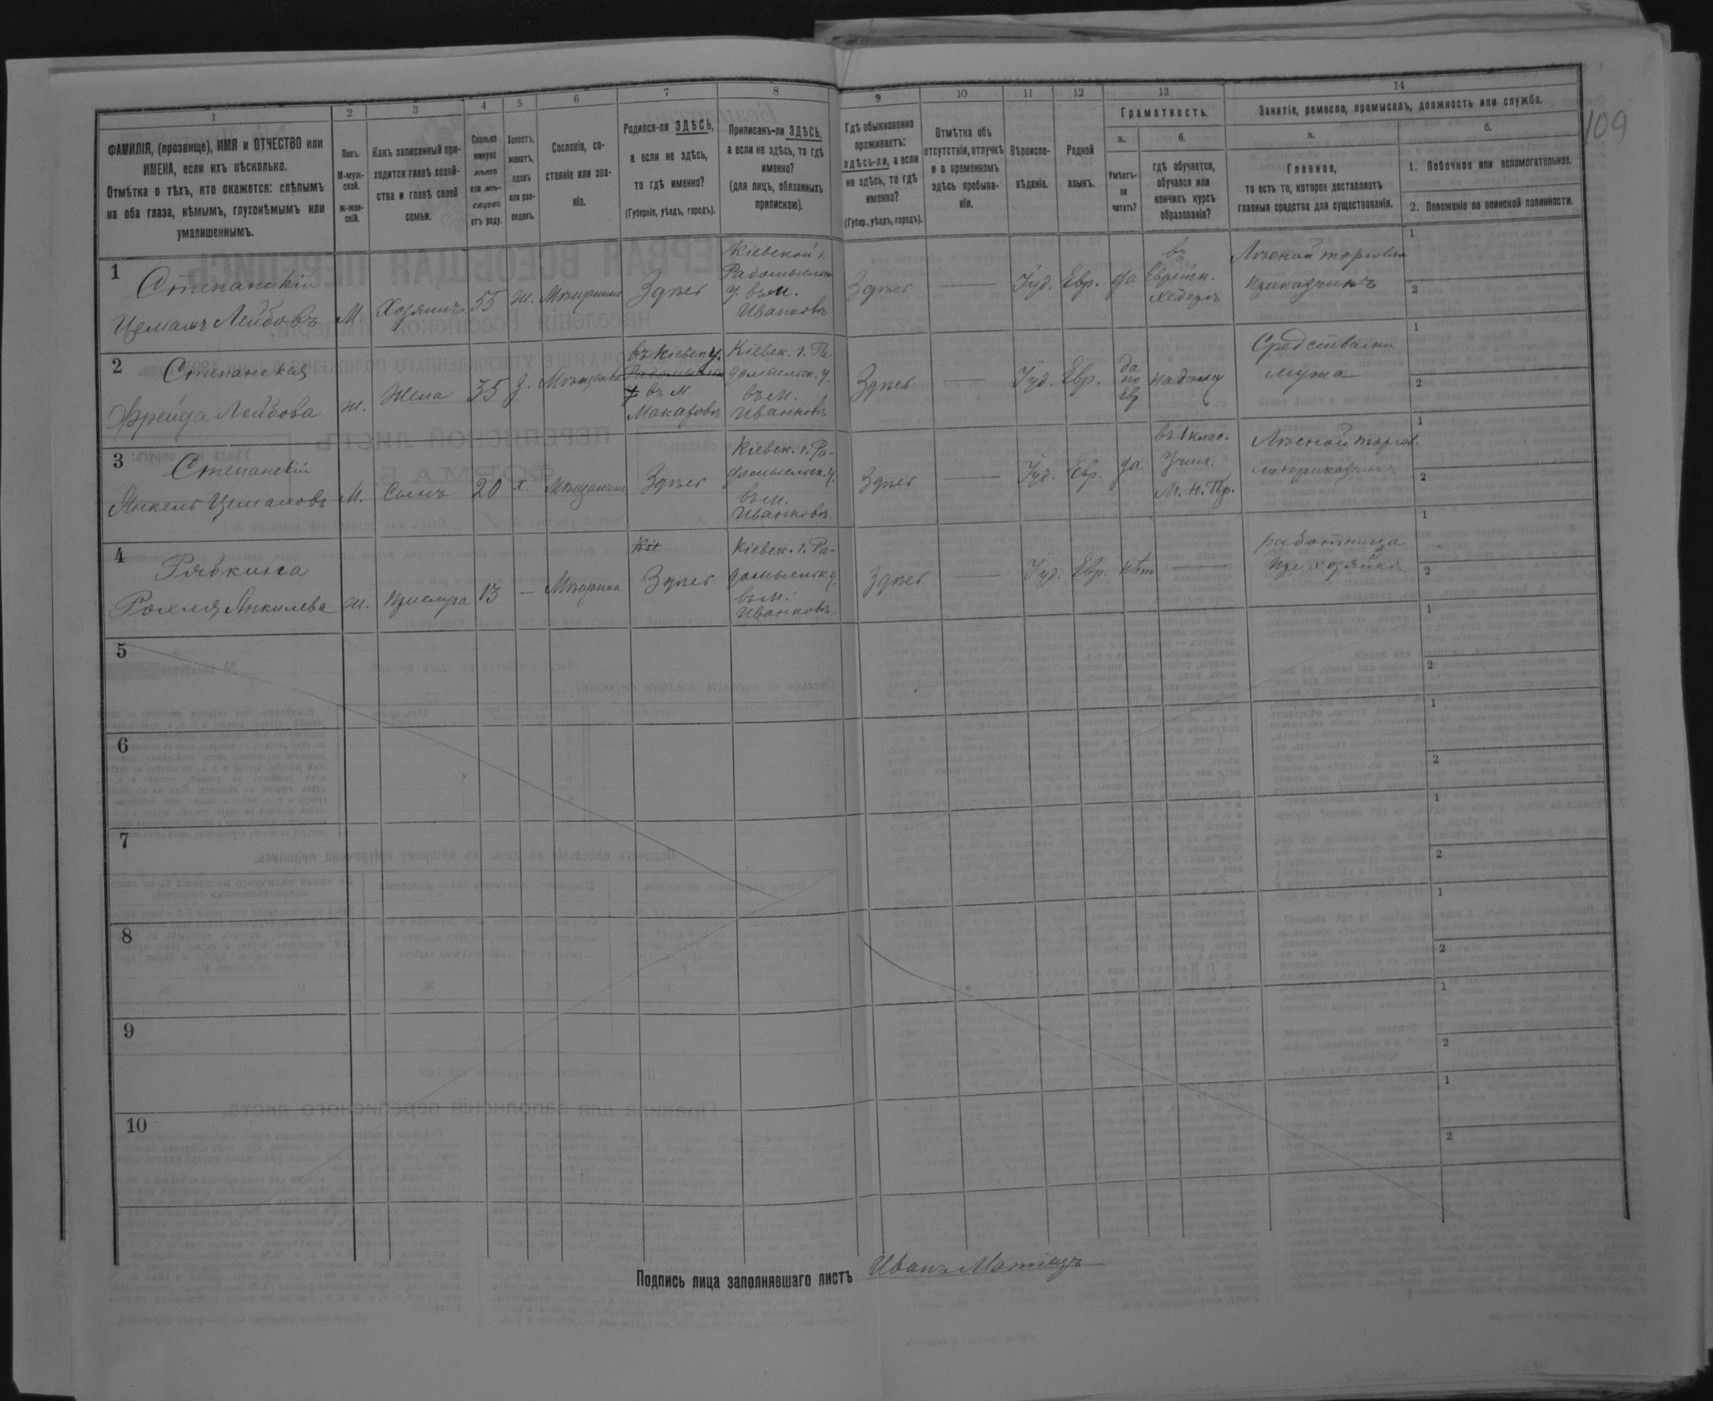 109
1 2 3 4 5 6 7 8 9 10 11 12 13 14
ФАМИЛІЯ, (прозвище), ИМЯ и ОТЧЕСТВО или
ИМЕНА, если ихъ нѣсколько.
Отмѣтка о тѣхъ, кто окажется: слѣпымъ
на оба глаза, нѣмымъ, глухонѣмымъ или
умалишеннымъ.
Полъ.
М-муж-
ской.
ж-жен-
скій.
Какъ записанный при-
ходится главѣ хозяй-
ства и главѣ своей
семьи.
Сколько
минуло
лѣтъ
или мѣ-
сяцевъ
отъ роду.
Холостъ,
женатъ,
вдовъ
или раз-
веденъ.
Сословіе, со-
стояніе или зва-
ніе.
Родился-ли ЗДѢСЬ,
а если не здѣсь,
то гдѣ именно?
(Губернія, уѣздъ, городъ).
Приписанъ-ли ЗДѢСЬ,
а если не здѣсь, то гдѣ
именно?
(для лицъ, обязанныхъ
припискою).
Гдѣ обыкновенно
проживаетъ:
здѣсь-ли, а если
не здѣсь, то гдѣ
именно?
(Губер., уѣздъ, городъ).
Отмѣтка объ
отсутствіи, отлучкѣ
и о временномъ
здѣсь пребыва-
ніи.
Вѣроиспо-
вѣданіе.
Родной
языкъ.
Грамотность.
а.
Умѣетъ-
ли
читать?
б.
гдѣ обучается,
обучался или
кончилъ курсъ
образованія?
Занятіе, ремесло, промыселъ, должность или служба.
а.
Главное,
то есть то, которое доставляетъ
главныя средства для существованія.
б.
1. Побочное или вспомогательное.
2. Положеніе по воинской повинности.
1
Степанскій
Цемахъ Лейбовъ
М.
Хозяинъ
55
ж.
Мѣщанинъ
Здѣсь
Кіевской г.
Радомысльск.
у. въ м.
Иванковъ
Здѣсь
Іуд.
Евр.
да
въ
Еврейск.
хедерѣ
Лѣсной торговли
приказчикъ
1
2
2
Степанская
Фрейда Лейбова
ж.
Жена
35
З.
въ Кіевск. у.
въ М
Макаровъ
Кіевск. г. Ра-
домысльск. у.
въ м.
Иванковъ
Здѣсь
Іуд.
Евр.
да
по
евр
на дому
Средствами
мужа
1
2
3
Степанскій
Янкель Цемаховъ
М.
Сынъ
20
х.
Мѣщанинъ
Здѣсь
Кіевск. г. Ра-
домысльск. у.
въ м.
Иванковъ.
Здѣсь
Іуд.
Евр.
да
въ 1 клас.
Учил.
М. Н. Пр.
Лѣсной торгов-
ли приказчикъ
1
2
4
Рябкина
Рохля Янкилева
ж.
прислуга
13
Мѣщанка
Здѣсь
Кіевск. г. Ра-
домысльск. у.
въ м.
Иванковъ.
Здѣсь
Іуд.
Евр.
нѣт
работница
при хозяйкѣ
1
2
5
1
2
6
1
2
7
1
2
8
1
2
9
1
2
10
1
2
Подпись лица заполнявшаго листъ Иванъ